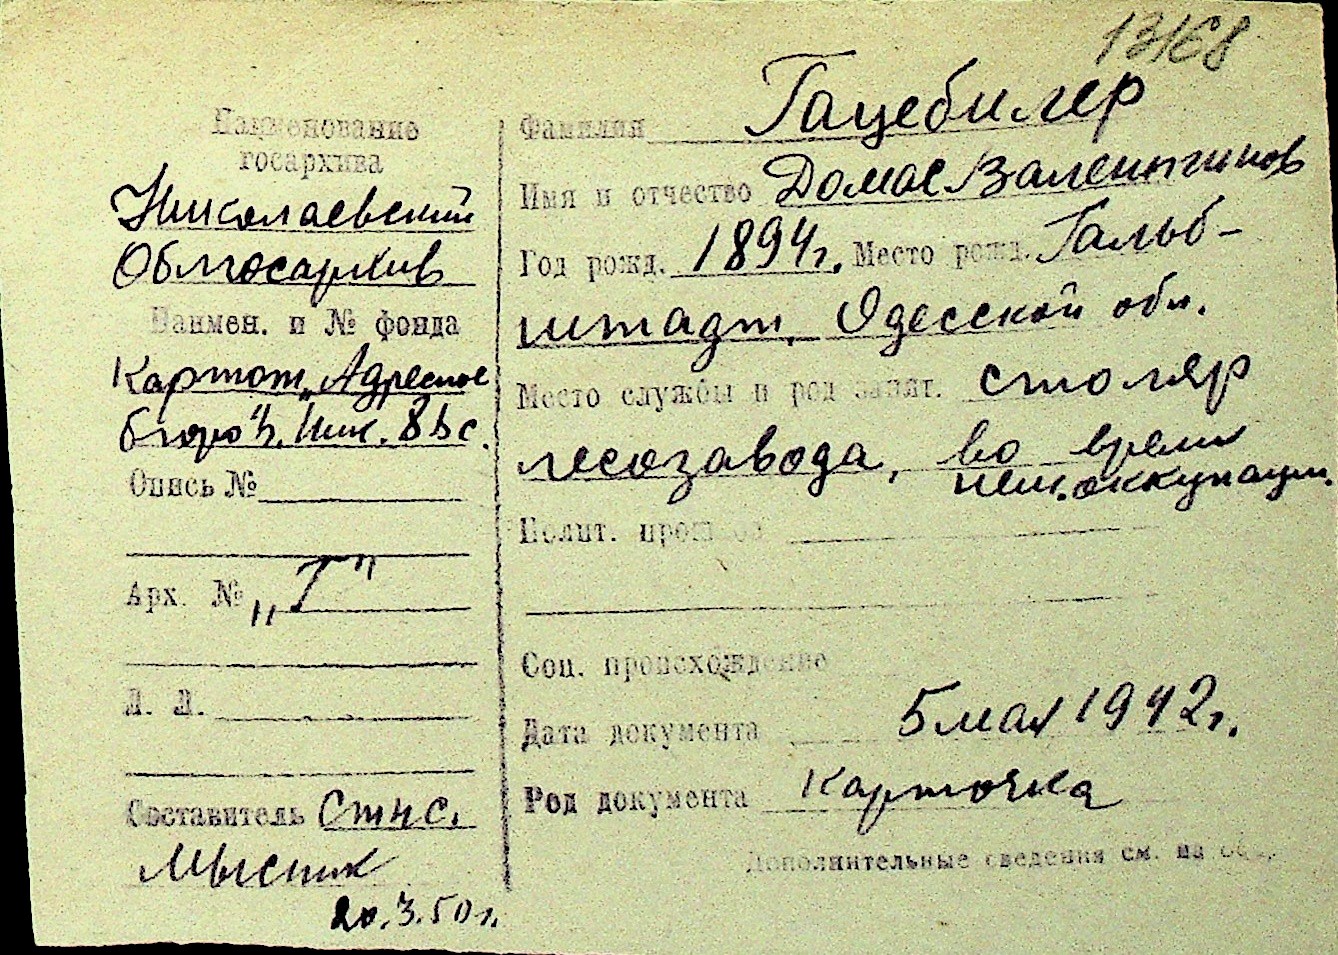 13168
Наименование
госархива
Николаевский
Облгосархив
Наимен. и № фонда
Картот. „Адресное
бюро" г. Ник.
Опись №
Арх. № „Г"
Л. Л.
Составитель Ст. н. с.
Мысник
20.3.50 г.
Фамилия Гацебилер
Имя и отчество Домас Валентинов
Год рожд. 1894 г. Место рожд. Гальб-
штадт, Одесской обл.
Место службы и род занят. столяр
лесозавода, во время
нем. оккупации.
Полит.
Соц. происхождение
Дата документа 5 мая 1942 г.
Род документа карточка
Дополнительные сведения см. на об.